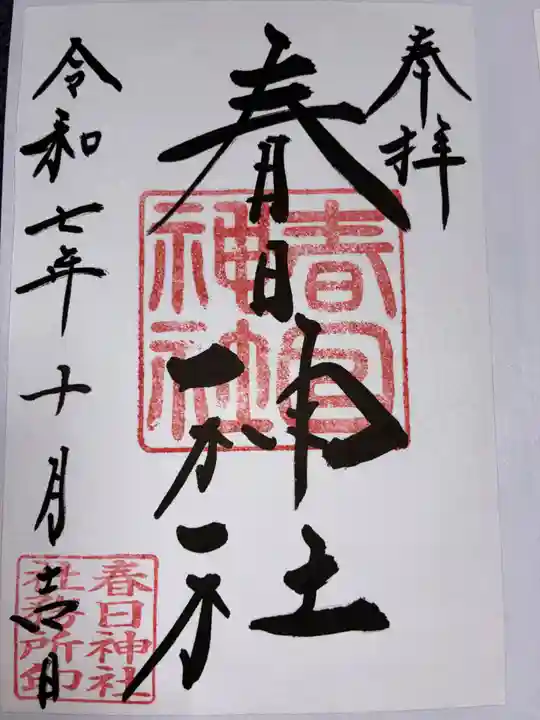 奉拝
春日神社
令和七年十月吉日
春日
神社
春日神社
社務所印